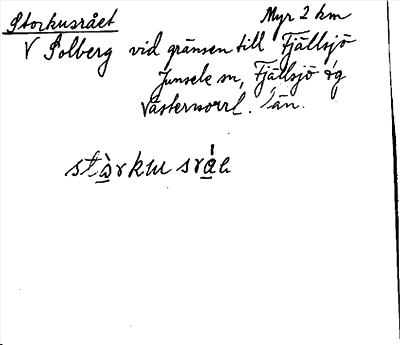 Storkusrået Myr 2 km
V Solberg vid gränsen till Fjällsjö
Junsele sn, Fjällsjö
Västernorrl. län.